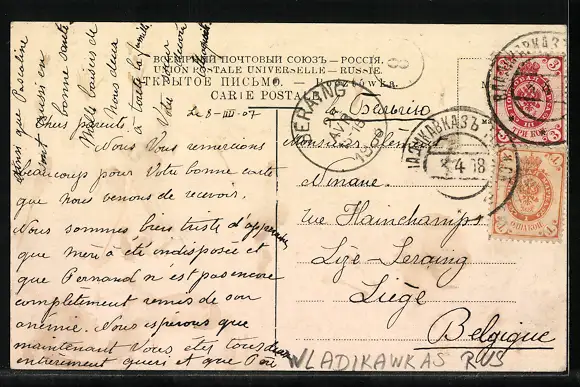 ainsi que Pascaline
sont aussi en
bonne santé
Mille baisers de
Nous deux
à toute la famille
Votre
ВСЕМІРНЫЙ ПОЧТОВЫЙ СОЮЗЪ – РОССІЯ.
UNION POSTALE UNIVERSELLE – RUSSIE.
ОТКРЫТОЕ ПИСЬМО.
CARTE POSTALE
8
Le 8-III-07
Chers parents
Nous Vous remercions
beaucoup pour Votre bonne carte
que nous venons de recevoir.
Nous sommes bien triste d'apprendre
que mère à été indisposée et
que Fernand n'est pas encore
complètement remis de son
anémie. Nous espérons que
maintenant Vous êtes tous
entièrement guéri et que
SERAING
AVR
18
Бельгію
Monsieur
Ninane
rue Hainchamps
Lize-Seraing
Liège
Belgique
ВЛАДИКАВКАЗЪ
4 18
3
3
ТРИ КОП
WLADIKAWKAS RUS